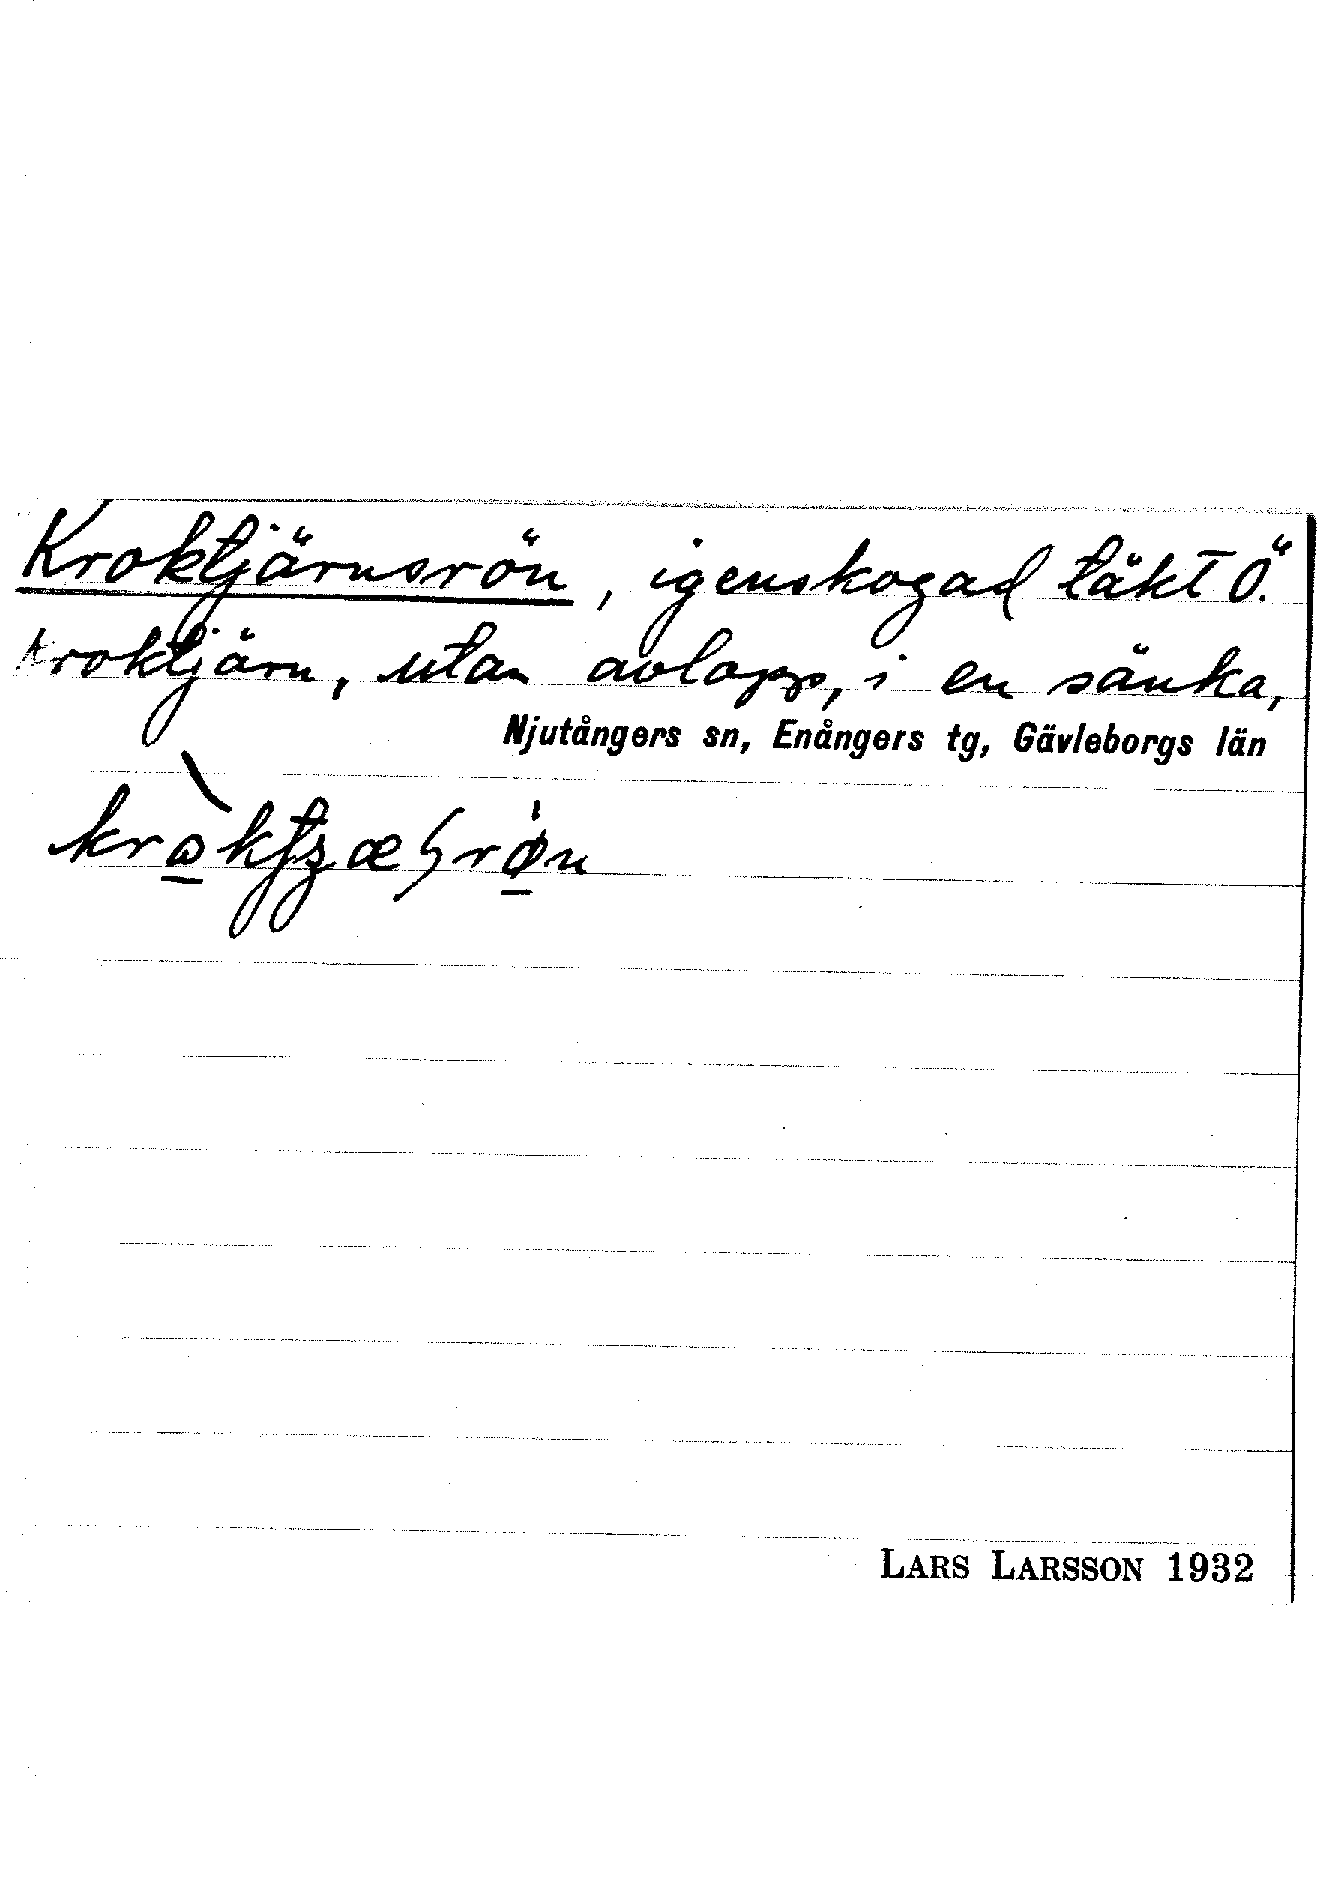 Kroktjärnsrön, igenskogad täkt Ö.
Kroktjärn, utan avlopp, i en sänka,
Njutångers sn, Enångers tg, Gävleborgs län
LARS LARSSON 1932